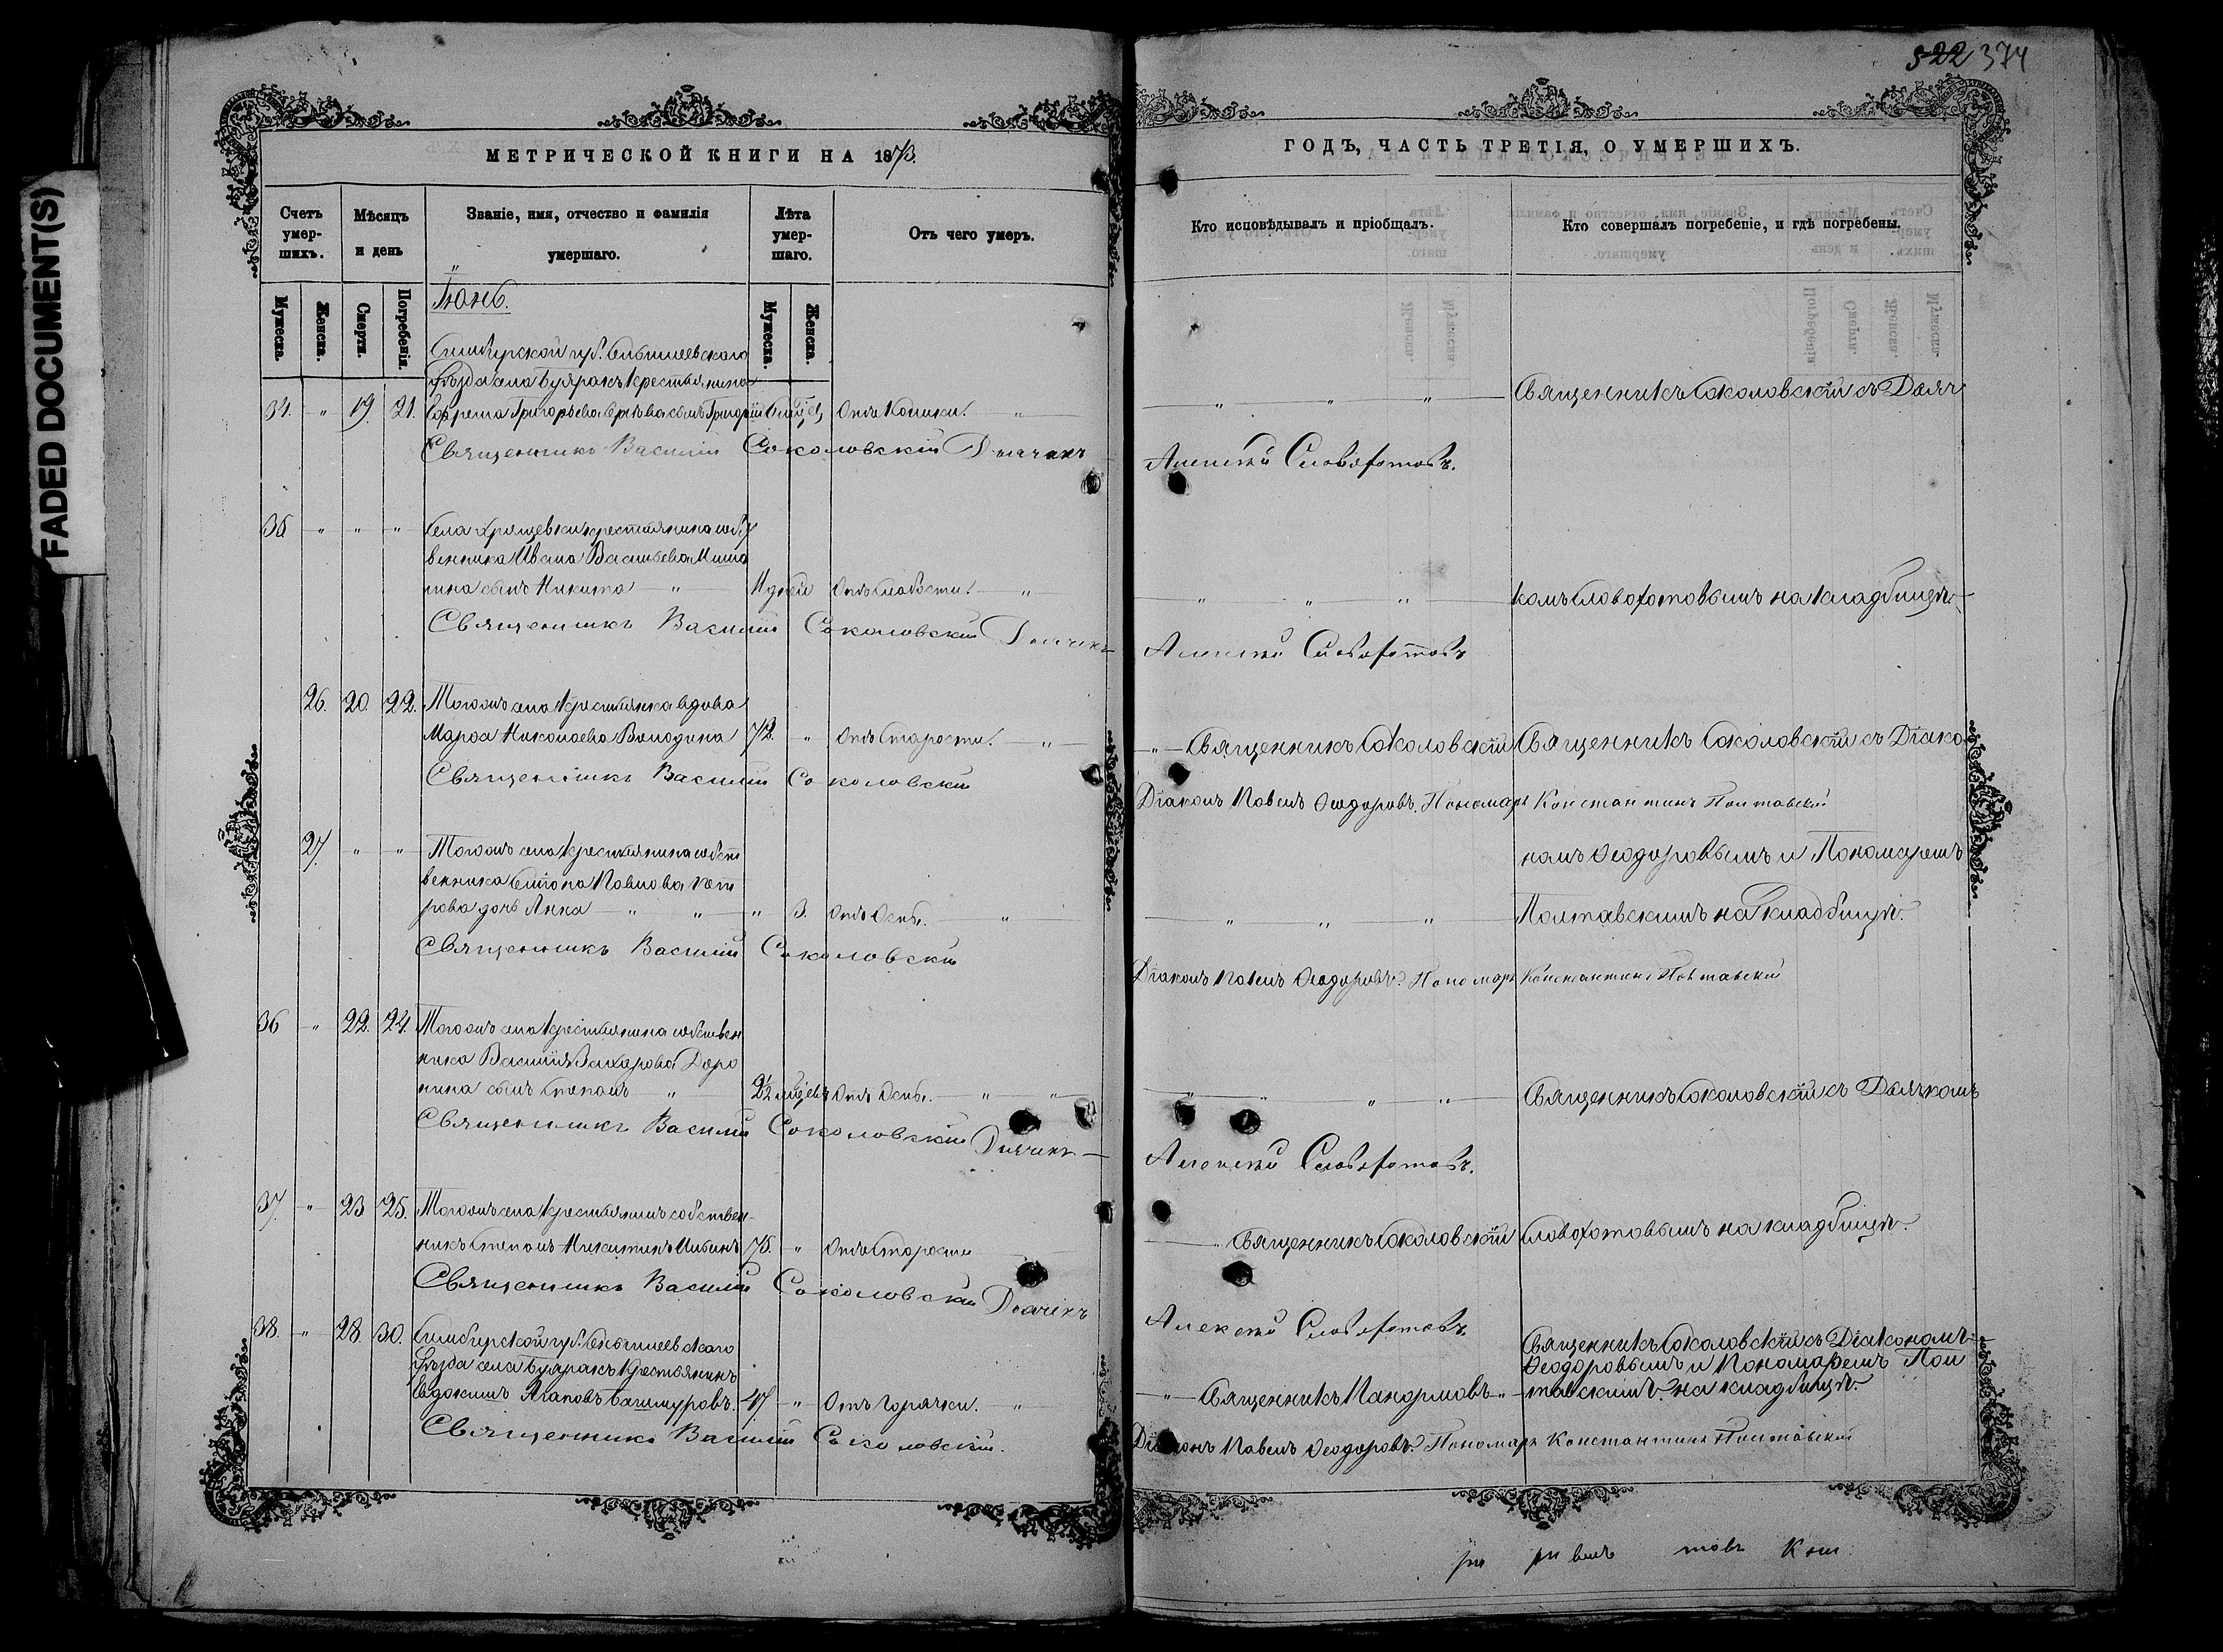 FADED DOCUMENT(S)
522 374
МЕТРИЧЕСКОЙ КНИГИ НА 1873.
Счетъ умер-шихъ.
Мѣсяцъ и день
Званіе, имя, отчество и фамилія умершаго.
Лѣта умер-шаго.
Отъ чего умеръ.
Мужеска.
Женска.
Смерти.
Погребенія.
Мужеска.
Женска.
Іюнь.
Симбирской губ.
уѣзда села Буяракъ крестьянина
34. " 19. 21. Ефрема Григорьева сынъ Григорій
Священникъ Василій Соколовскій Дьячекъ
35 " " " Села крестьянина собст
венника Ивана Васильева Миша
нина сынъ Никита " 11 дней Отъ слабости. "
Священникъ Василій Соколовскій Дьячекъ
26. 20. 22. Тогожъ села крестьянка вдова
Николаева Володина 72. " Отъ старости. "
Священникъ Василій Соколовскій
27. " " Тогожъ села крестьянина собст
венника Павлова Пет
рова дочь Анна " " " 3. Отъ Оспы. "
Священникъ Василій Соколовскій
36 " 22. 24. Тогожъ села крестьянина собствен
ника Василія Захарова Доро
нина сынъ Степанъ " 2½ Отъ Оспы. " "
Священникъ Василій Соколовскій Дьячекъ
37. " 23 25. Тогожъ села крестьянинъ собствен-
никъ Степанъ Никитинъ 75. " Отъ старости
Священникъ Василій Соколовскій Дьячекъ
38. " 28. 30. Симбирской губ.
уѣзда села Буяракъ крестьянинъ
Евдокимъ Агаповъ Башмуровъ. 47 " Отъ горячки. "
Священникъ Василій Соколовскій.
ГОДЪ, ЧАСТЬ ТРЕТІЯ, О УМЕРШИХЪ.
Кто исповѣдывалъ и пріобщалъ.
Кто совершалъ погребеніе, и гдѣ погребены.
" " " Священникъ Соколовскій съ Дьяч
Алексѣй Словохотовъ.
" " " комъ Словохотовымъ на кладбищѣ.
Алексѣй Словохотовъ
" Священникъ Соколовскій Священникъ Соколовскій съ Діако
Діаконъ Павелъ Ѳеодоровъ. Пономарь Константинъ Полтавскій
номъ Ѳеодоровымъ и Пономаремъ
" " " Полтавскимъ на кладбищѣ.
Діаконъ Павелъ Ѳеодоровъ. Пономарь Константинъ Полтавскій
" " " " Священникъ Соколовскій съ Дьячкомъ
Алексѣй Словохотовъ.
" Священникъ Соколовскій Словохотовымъ на кладбищѣ.
Алексѣй Словохотовъ
Священникъ Соколовскій съ Діакономъ
Ѳеодоровымъ и Пономаремъ Пол
" Священникъ " тавскимъ на кладбищѣ.
Діаконъ Павелъ Ѳеодоровъ. Пономарь Константинъ Полтавскій